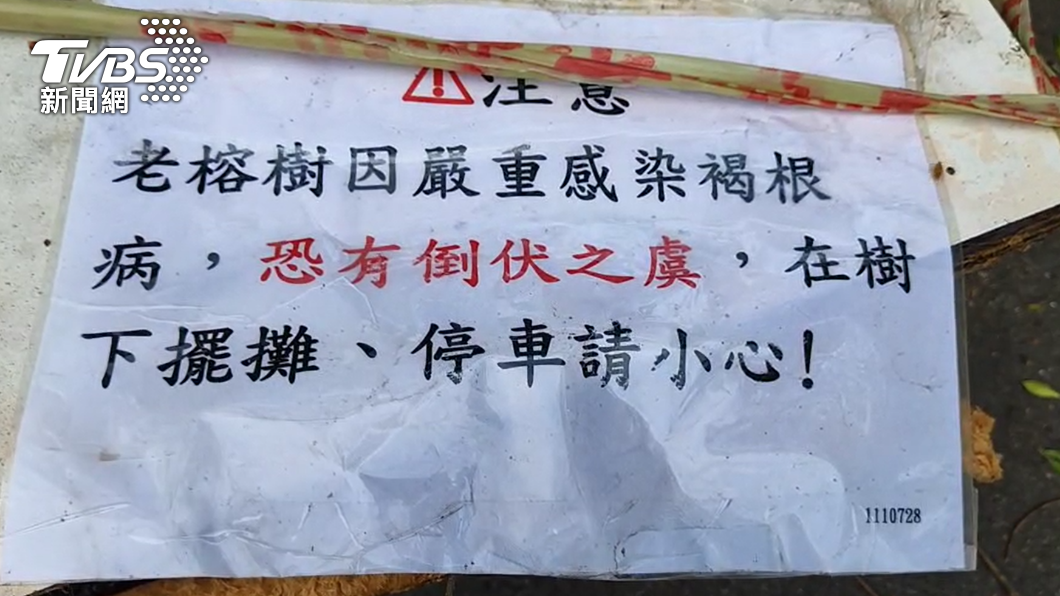 TVBS
新聞網
注意
老榕樹因嚴重感染褐根
病，恐有倒伏之虞，在樹
下擺攤、停車請小心！
1110728